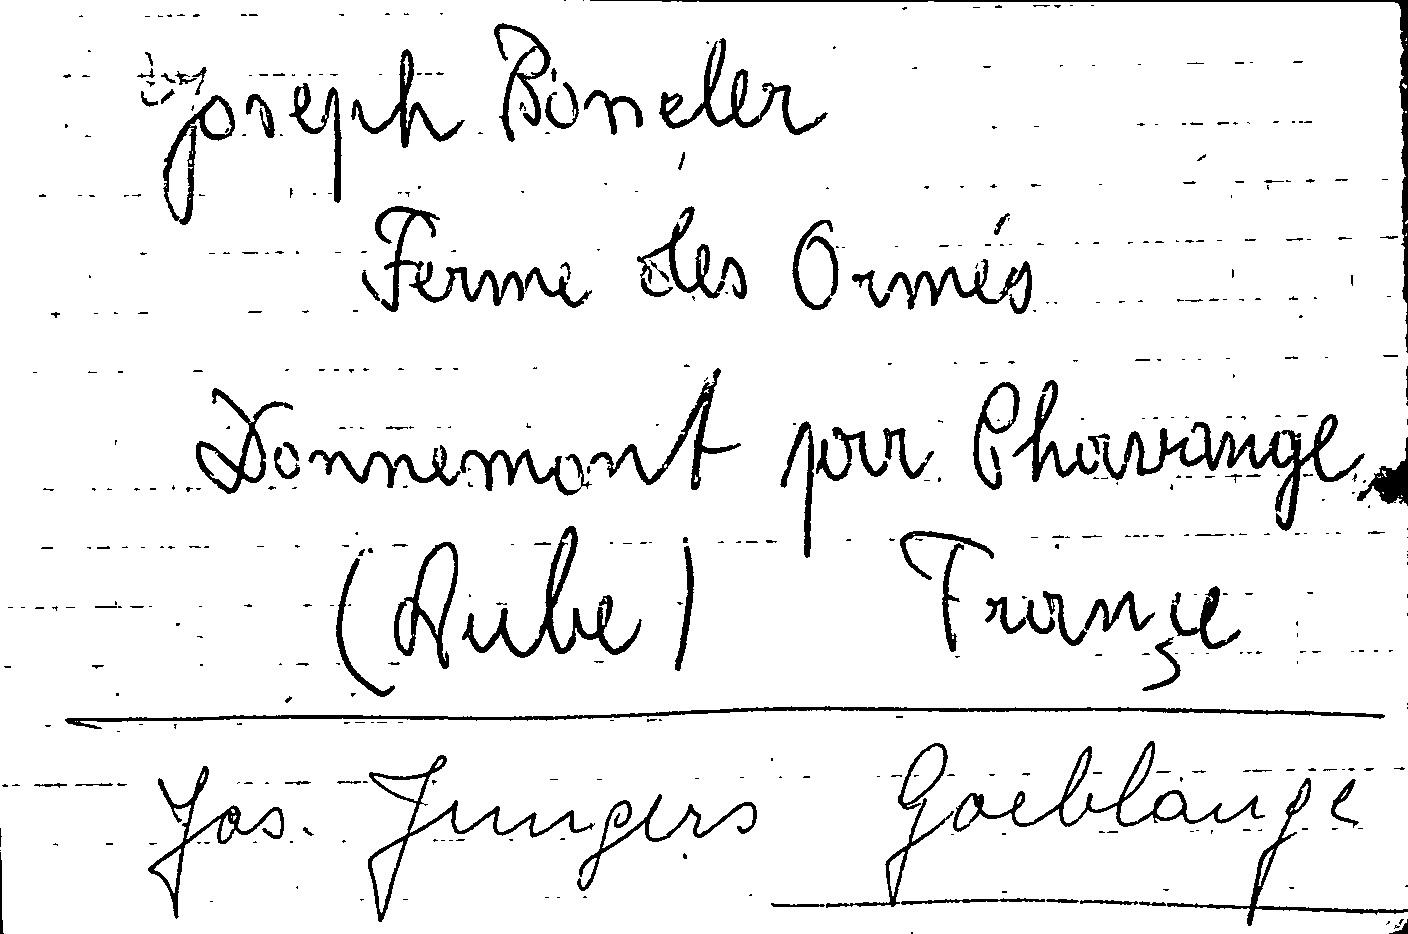 Joseph Bonéler
Ferme des Ormés
Donnemont par Chavange
(Aube) France
Jos. Jungers Goeblange